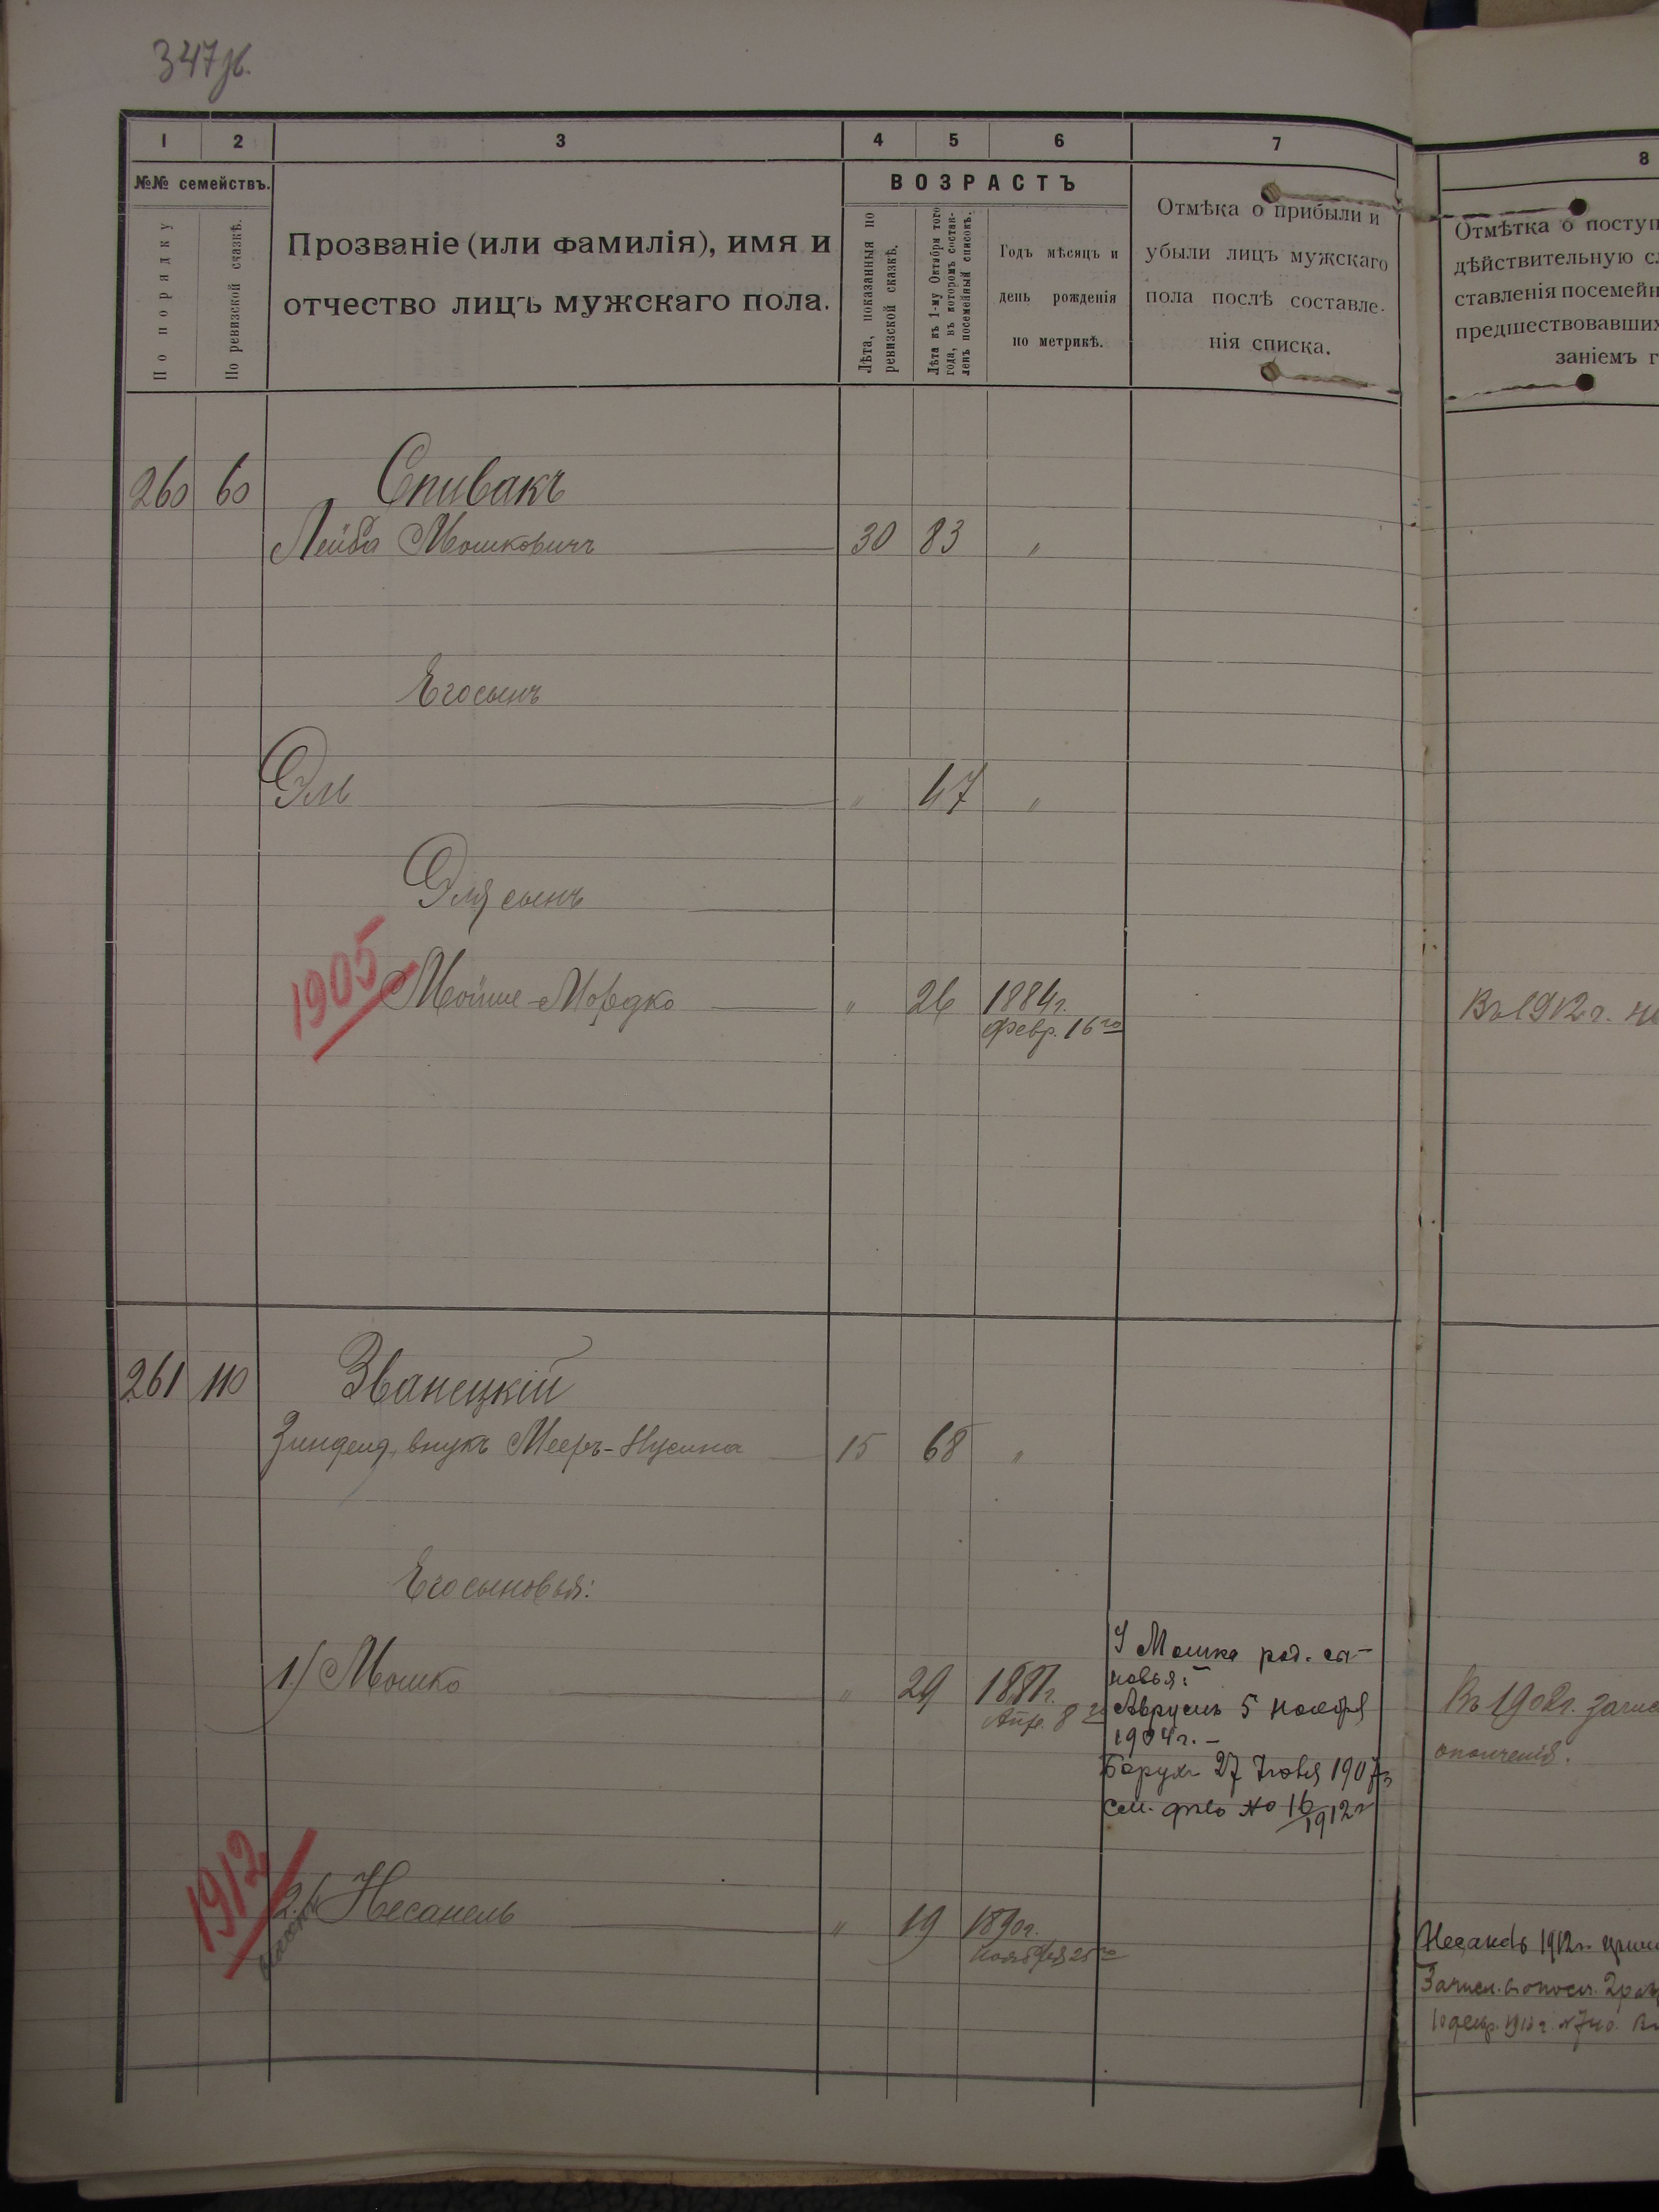 347 зв.
1 2 3 4 5 6 7 8
№№ семействъ.
По порядку
По ревизской сказкѣ.
Прозваніе (или фамилія), имя и
отчество лицъ мужскаго пола.
ВОЗРАСТЪ
Лѣта, показанныя по
ревизской сказкѣ.
Лѣта къ 1-му Октября того
года, въ которомъ состав-
ленъ посемейный списокъ.
Годъ мѣсяцъ и
день рожденія
по метрикѣ.
Отмѣка о прибыли и
убыли лицъ мужскаго
пола послѣ составле-
нія списка.
Отмѣтка о поступ
дѣйствительную сл
ставленія посемейн
предшествовавших
заніемъ г
260 60 Спивакъ
Лейба Мошковичъ 30 83 "
Его сынъ
Эль " 47 "
Эля сынъ
1905 Мойше-Мордко " 26 1884г.
февр. 16го
Въ 1912 г.
261 110 Званецкій
Зинделя, внукъ Мееръ-Нусина 15 68 "
Его сыновья:
1.) Мошко " 29 1881г.
Апр. 8го
У Мошка род. сы-
новья:
Аврумъ 5 ноября
1904г. -
Борухъ 27 Іюня 1907г
см. дѣло № 16/1912г
Въ 1902г. зачис
ополченія.
1912 2.) Несанель " 19 1890г.
ноября 25го
1912г.
Зачисл.